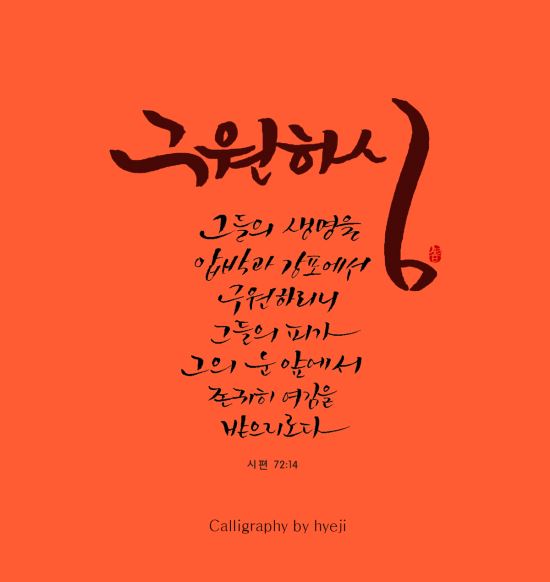 구원하심
그들의 생명을
압박과 강포에서
구원하리니
그들의 피가
그의 눈 앞에서
존귀히 여김을
받으리로다
시편 72:14
Calligraphy by hyeji